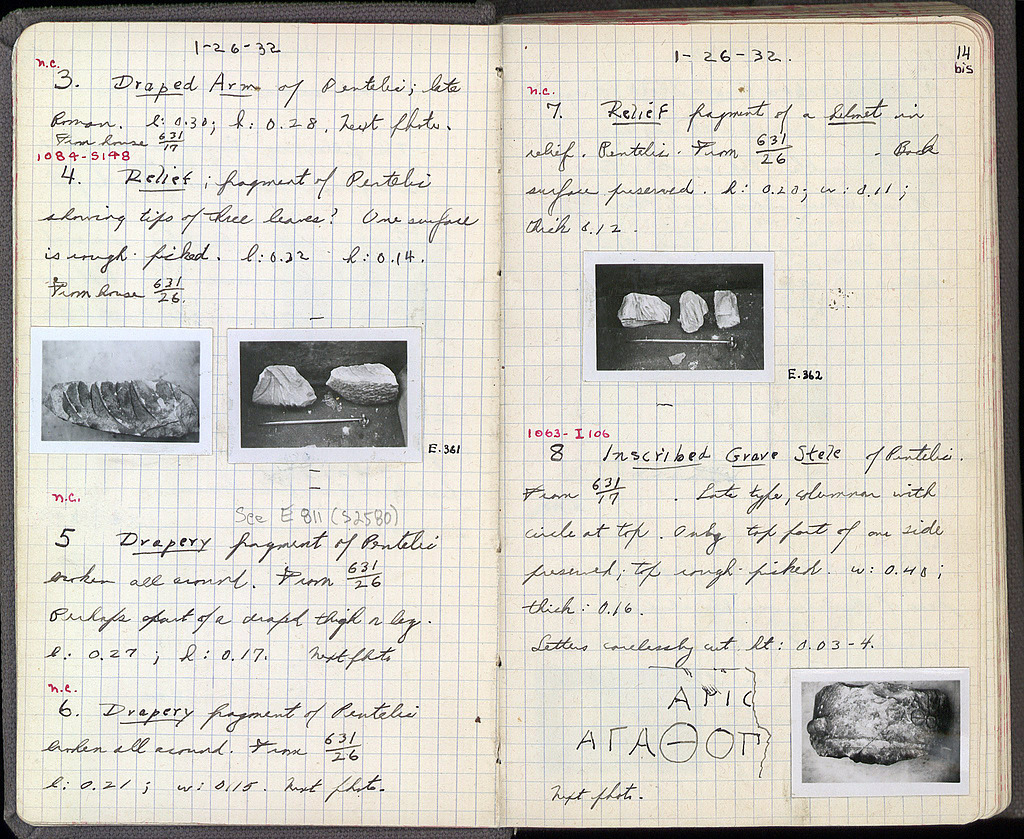 1-26-32
n.c.
3. Draped Arm of Pentelic; late
Roman. l: 0.30; h: 0.28. Next photo.
From house 631/17
1084-S148
4. Relief; fragment of Pentelic
showing tips of three leaves? One surface
is rough-picked. l: 0.32 h: 0.14.
From house 631/26.
E.361
n.c.
See E 811 (S2580)
5 Drapery fragment of Pentelic
broken all around. From 631/26
Perhaps part of a draped thigh or leg.
l: 0.27; h: 0.17. Next photo
n.c.
6. Drapery fragment of Pentelic
broken all around. From 631/26
l: 0.21; w: 0.15. Next photo.
1-26-32.
14
bis
n.c.
7. Relief fragment of a helmet in
relief. Pentelic. From 631/26. Back
surface preserved. h: 0.20; w: 0.11;
thick 0.12.
E.362
1063-I 106
8 Inscribed Grave Stele of Pentelic.
From 631/17. Late type, columnar with
circle at top. Only top part of one side
preserved; top rough-picked. w: 0.40;
thick: 0.16.
Letters carelessly cut ht: 0.03-4.
ΑΡΙC
ΑΓΑΘΟΠ
Next photo.